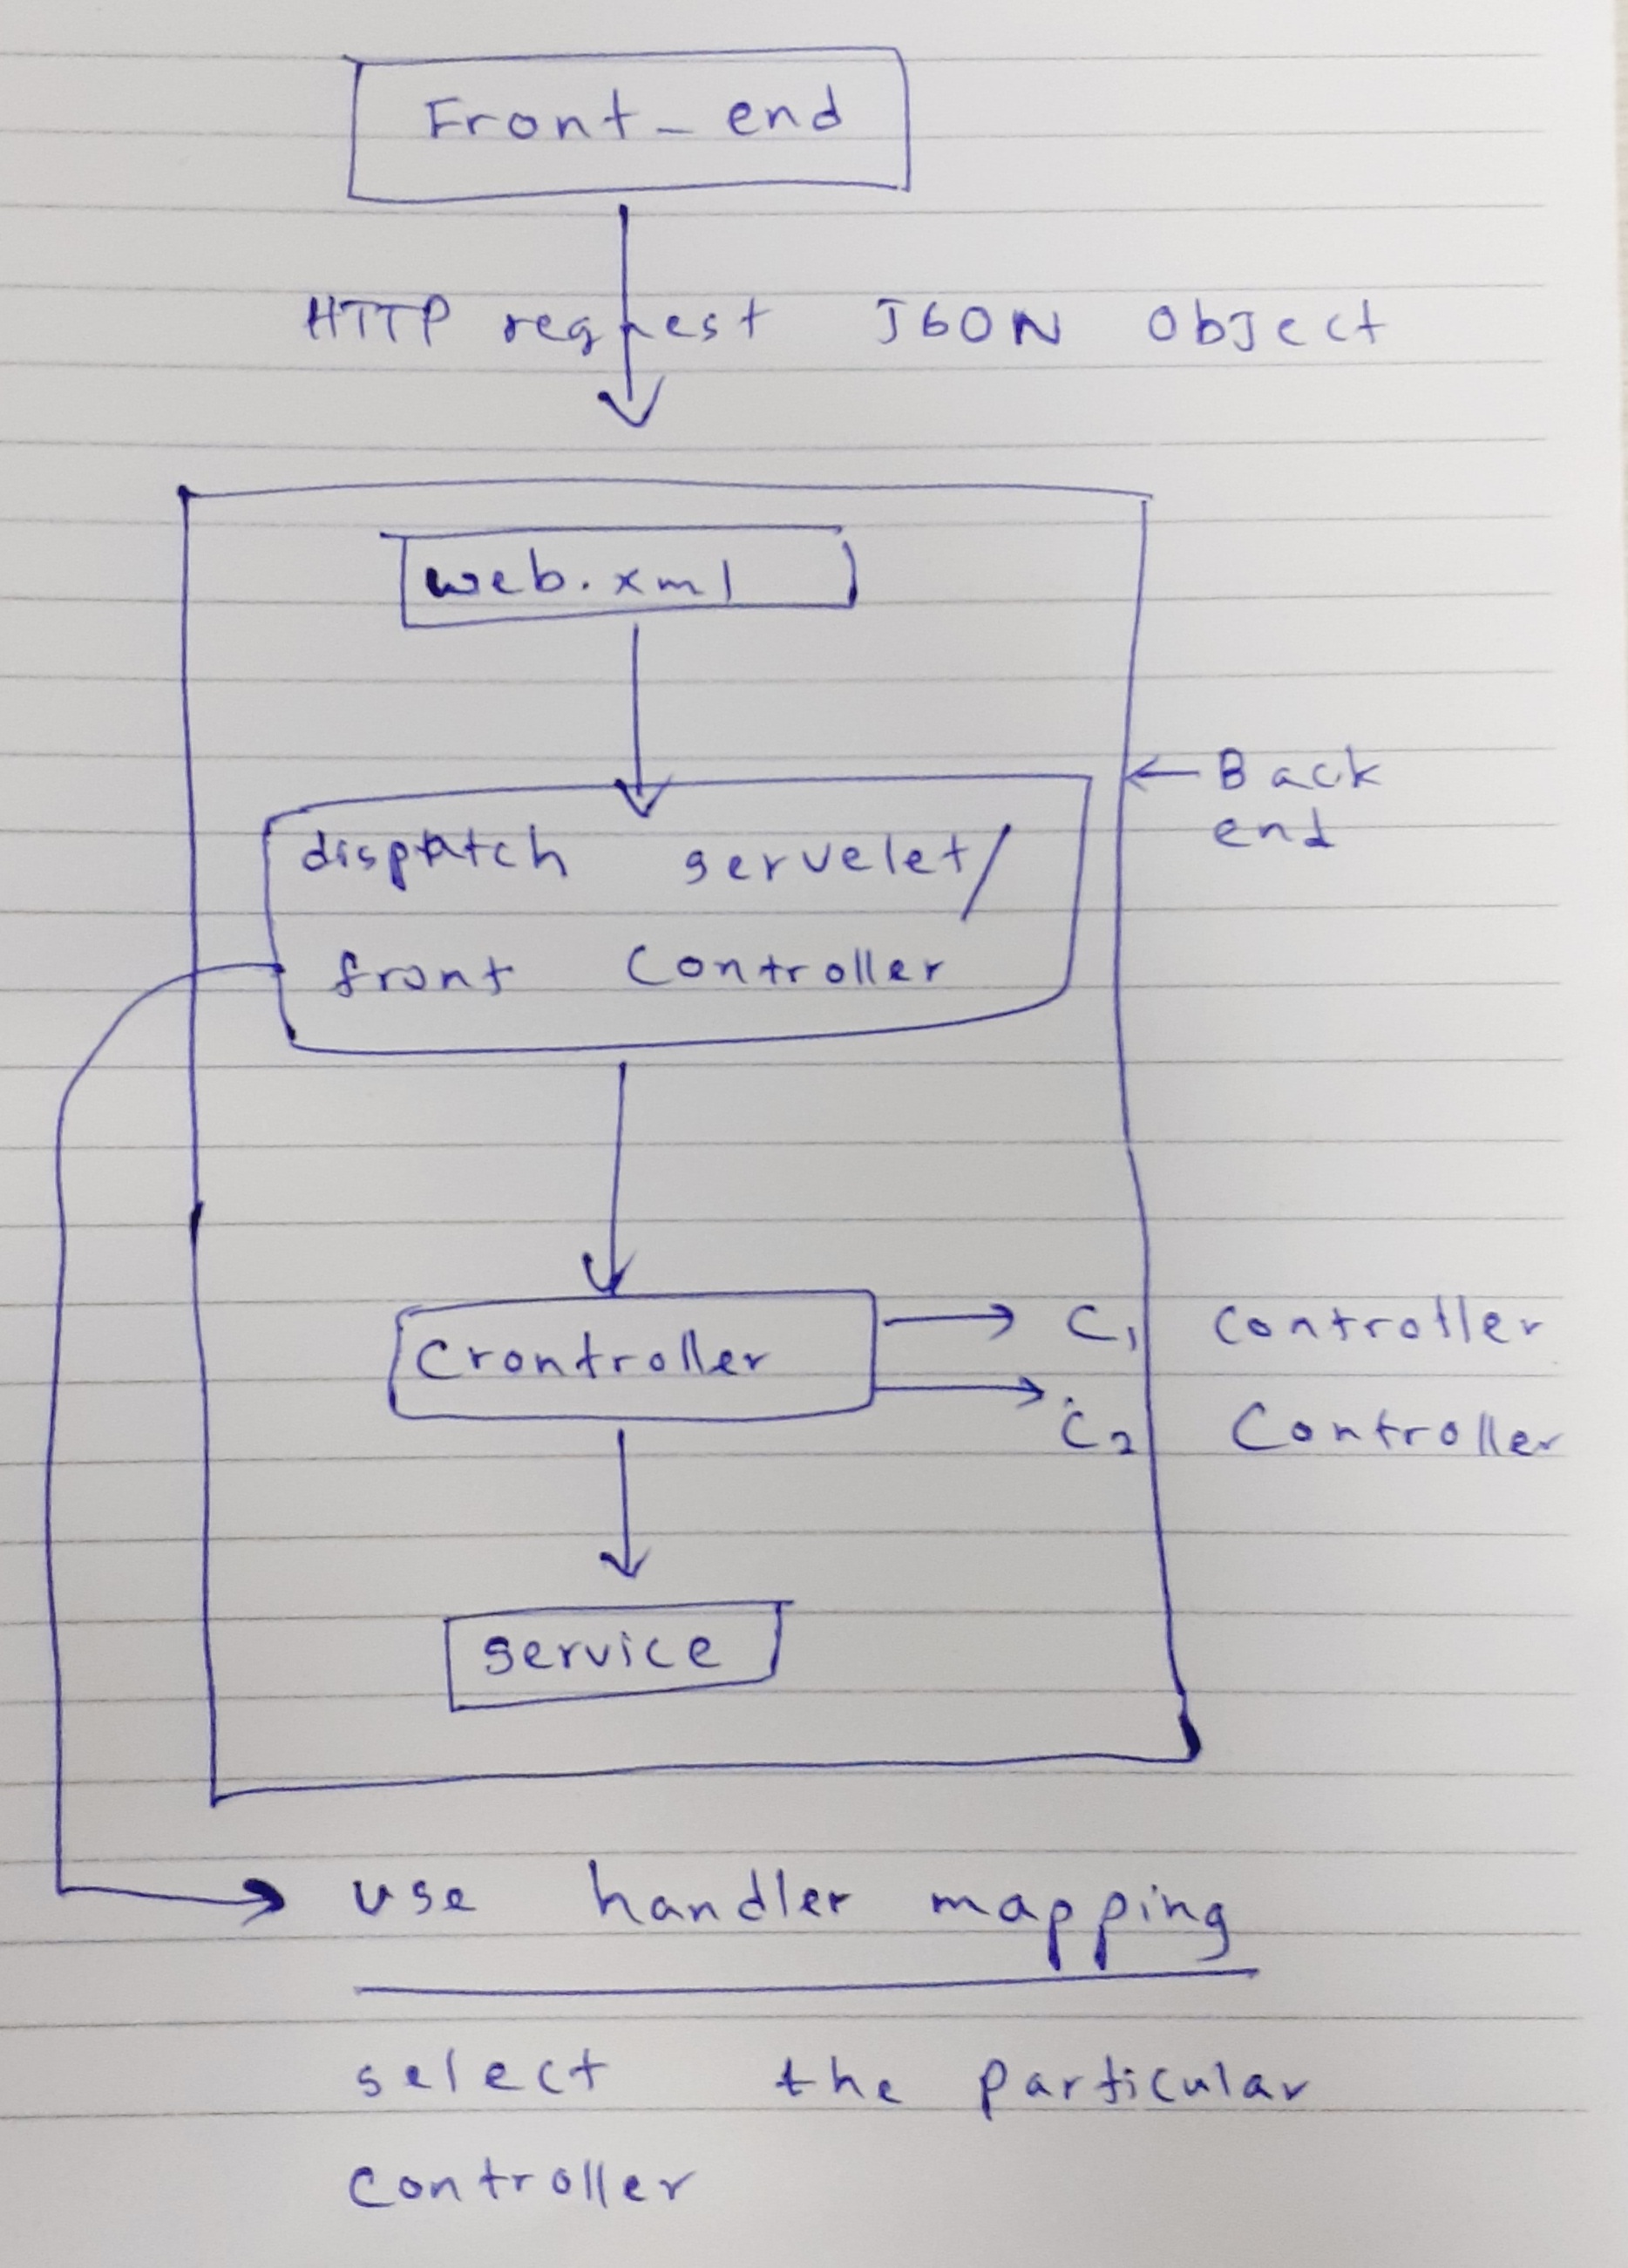 Front_end
HTTP request JSON Object
web.xml
← Back
end
dispatch servelet/
front Controller
Crontroller
→ C1 Controller
→ C2 Controller
service
→ use handler mapping
select the particular
Controller